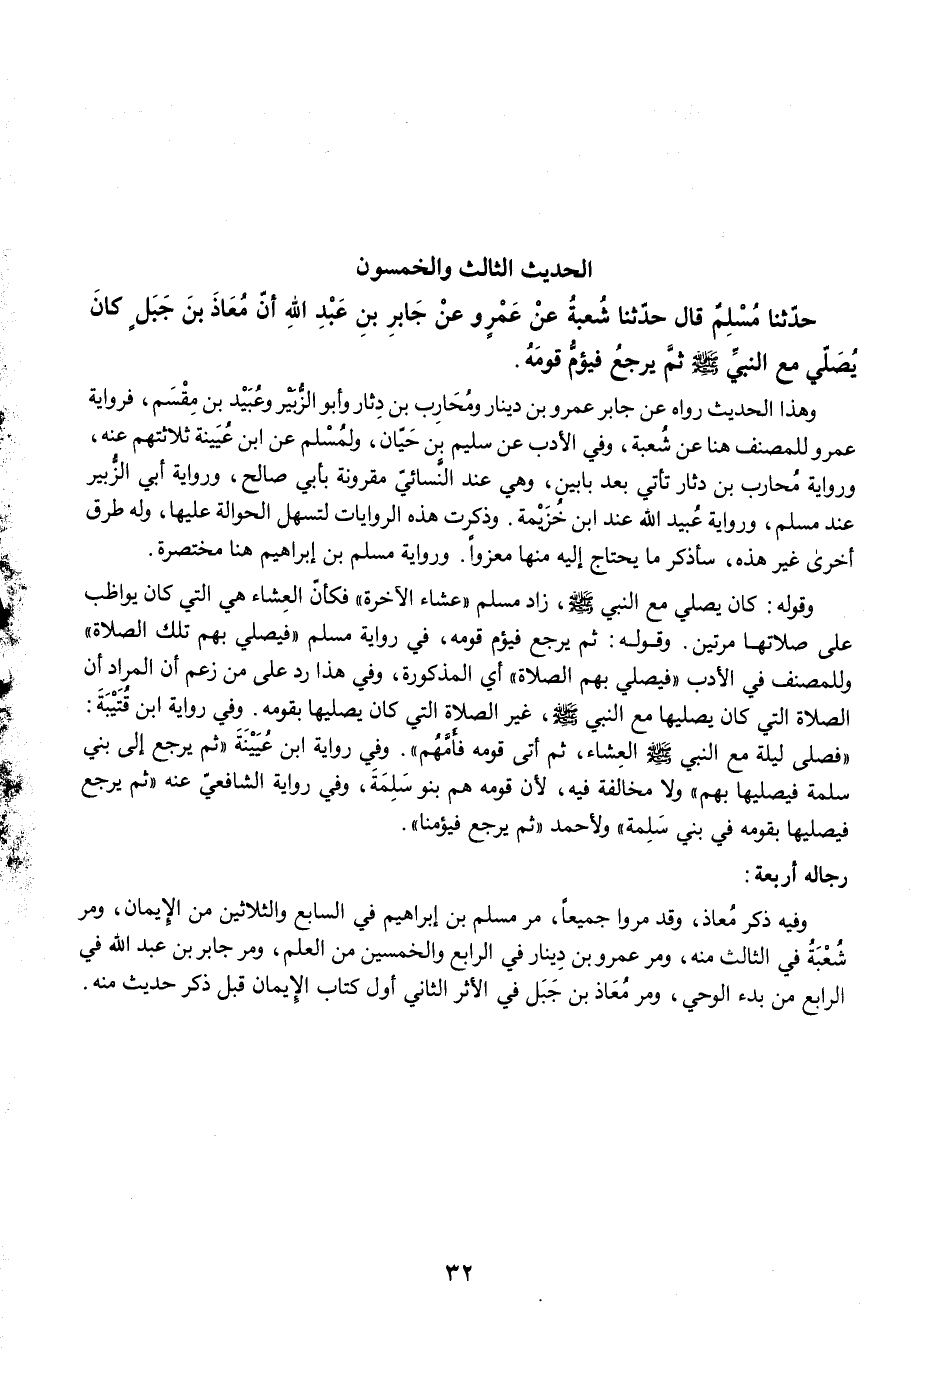 الحديث الثالث والخمسون
حدّثنا مُسْلِمٌ قال حدّثنا شُعبةُ عنْ عَمْرٍو عنْ جَابرِ بنِ عَبْدِ اللهِ أنّ مُعَاذَ بنَ جَبَلٍ كانَ
يُصَلّي مع النبيِّ ﷺ ثمَّ يرجعُ فيؤمُّ قومَهُ.
وهذا الحديث رواه عن جابر عمرو بن دينار ومُحَارِب بن دِثار وأبو الزُّبَيْر وعُبَيْد بن مِقْسَم، فرواية
عمرو للمصنف هنا عن شُعبة، وفي الأدب عن سليم بن حَيّان، ولمُسْلم عن ابن عُيَينة ثلاثتهم عنه،
ورواية مُحارب بن دثار تأتي بعد بابين، وهي عند النَّسائيّ مقرونة بأبي صالح، ورواية أبي الزُّبير
عند مسلم، ورواية عُبيد الله عند ابن خُزَيْمة. وذكرت هذه الروايات لتسهل الحوالة عليها، وله طرق
أخرىٰ غير هذه، سأذكر ما يحتاج إليه منها معزواً. ورواية مسلم بن إبراهيم هنا مختصرة.
وقوله: كان يصلي مع النبي ﷺ، زاد مسلم «عشاء الآخرة» فكأنّ العِشاء هي التي كان يواظب
على صلاتها مرتين. وقوله: ثم يرجع فيؤم قومه، في رواية مسلم «فيصلي بهم تلك الصلاة»
وللمصنف في الأدب «فيصلي بهم الصلاة» أي المذكورة، وفي هذا رد على من زعم أن المراد أن
الصلاة التي كان يصليها مع النبي ﷺ، غير الصلاة التي كان يصليها بقومه. وفي رواية ابن قُتَيْبَةَ:
«فصلى ليلة مع النبي ﷺ العِشاء، ثم أتى قومه فأَمَّهُم». وفي رواية ابن عُيَيْنَةَ «ثم يرجع إلى بني
سلمة فيصليها بهم» ولا مخالفة فيه، لأن قومه هم بنو سَلِمَةَ، وفي رواية الشافعيّ عنه «ثم يرجع
فيصليها بقومه في بني سَلِمة» ولأحمد «ثم يرجع فيؤمنا».
رجاله أربعة:
وفيه ذكر مُعاذ، وقد مروا جميعاً، مر مسلم بن إبراهيم في السابع والثلاثين من الإيمان، ومر
شُعْبَةُ في الثالث منه، ومر عمرو بن دِينار في الرابع والخمسين من العلم، ومر جابر بن عبد الله في
الرابع من بدء الوحي، ومر مُعَاذ بن جَبَل في الأثر الثاني أول كتاب الإيمان قبل ذكر حديث منه.
٣٢